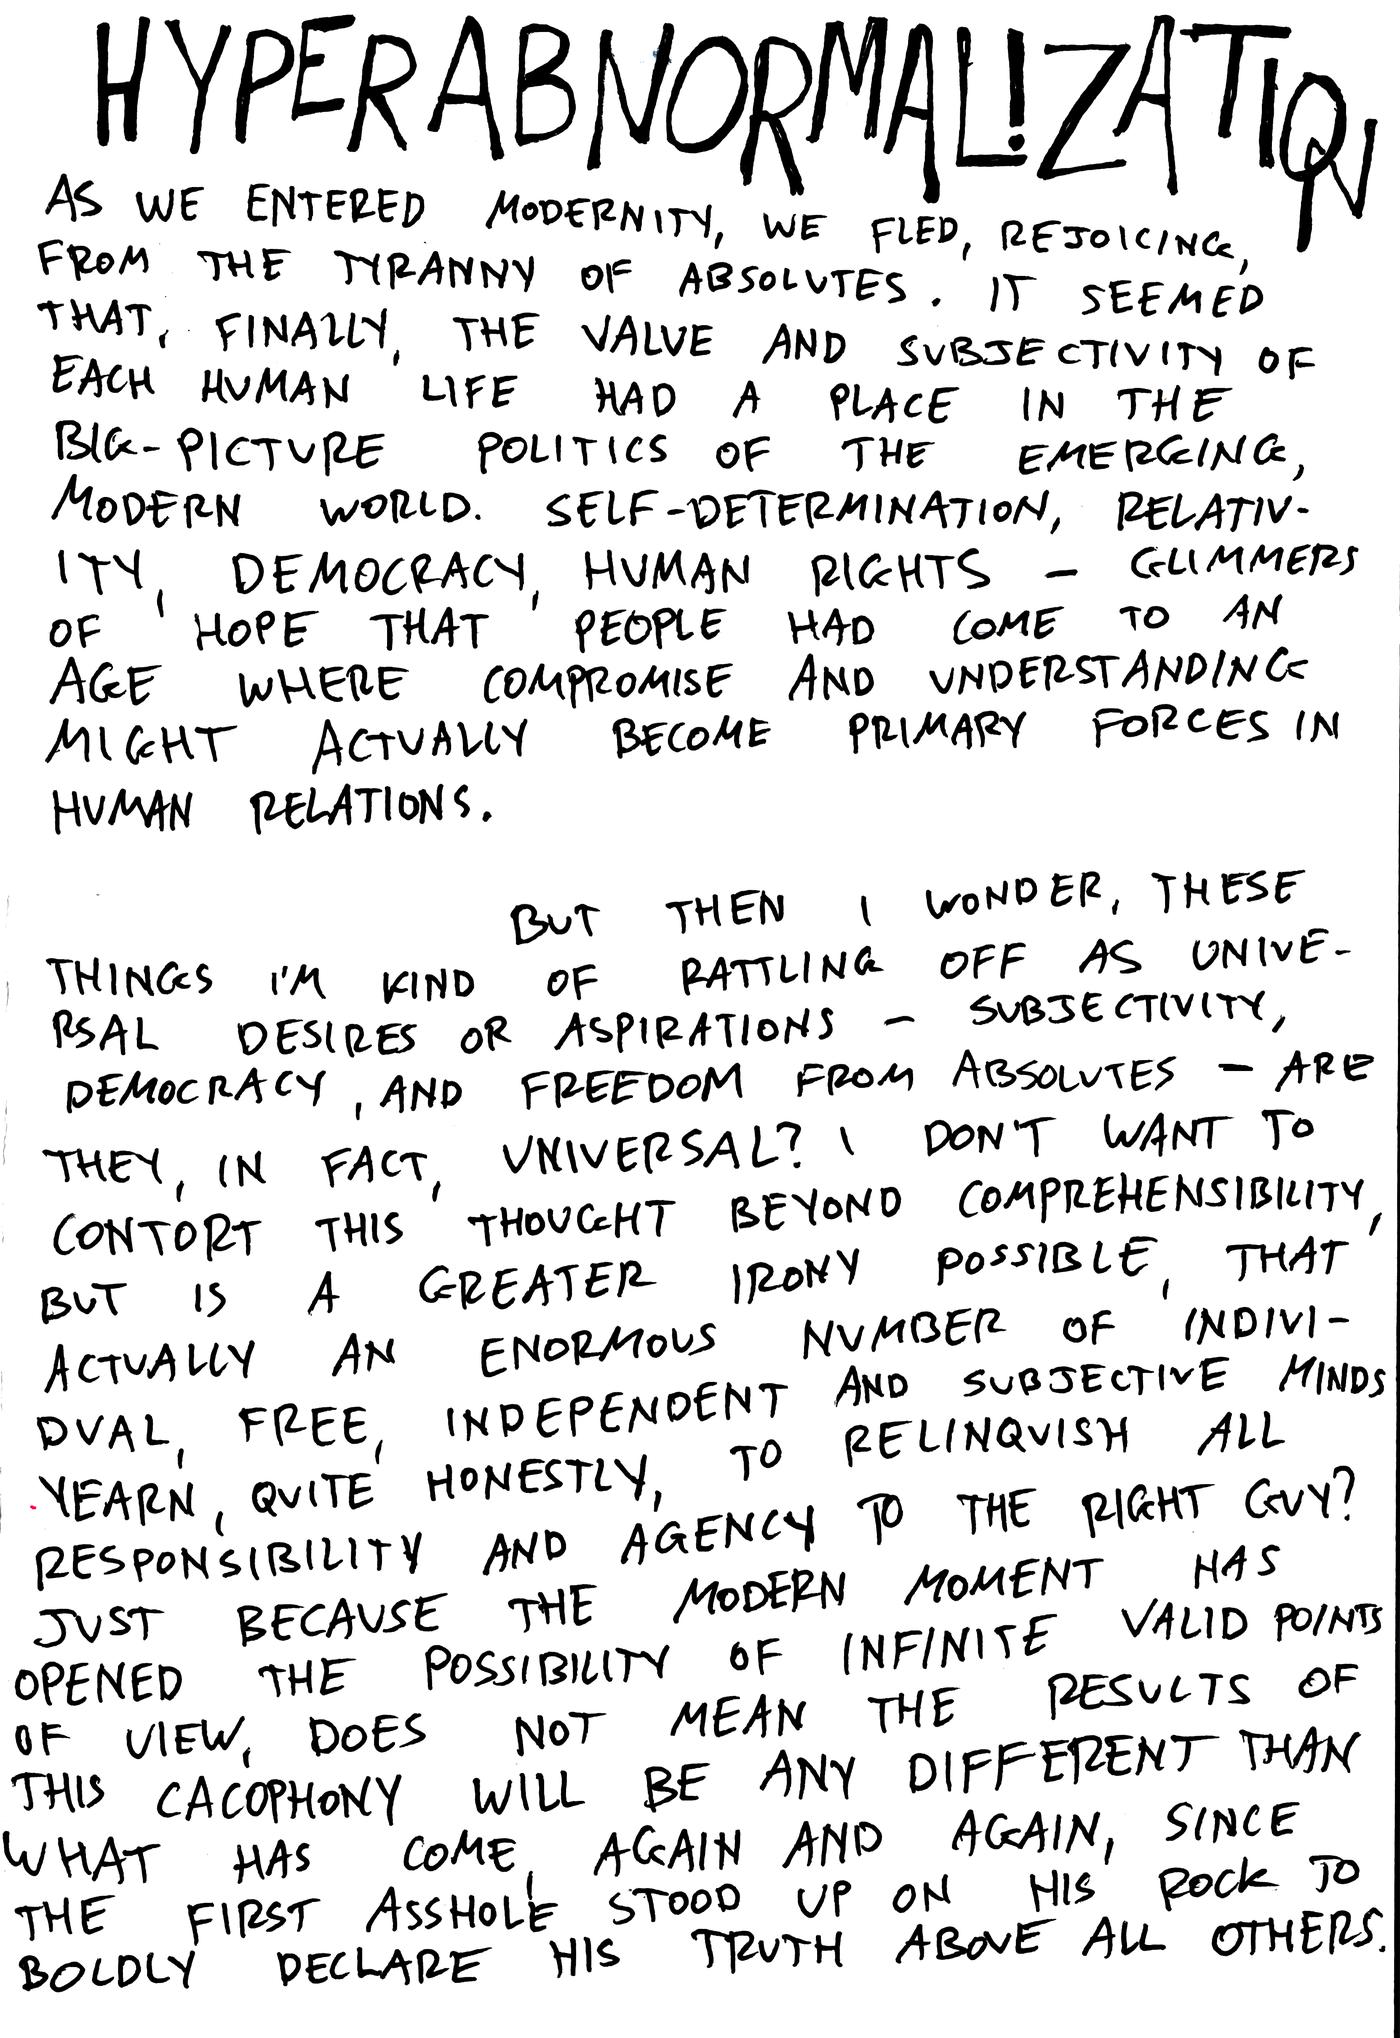 HYPERABNORMAL!ZATION
AS WE ENTERED MODERNITY, WE FLED, REJOICING,
FROM THE TYRANNY OF ABSOLUTES. IT SEEMED
THAT, FINALLY, THE VALUE AND SUBJECTIVITY OF
EACH HUMAN LIFE HAD A PLACE IN THE
BIG-PICTURE POLITICS OF THE EMERGING,
MODERN WORLD. SELF-DETERMINATION, RELATIV-
ITY, DEMOCRACY, HUMAN RIGHTS – GLIMMERS
OF HOPE THAT PEOPLE HAD COME TO AN
AGE WHERE COMPROMISE AND UNDERSTANDING
MIGHT ACTUALLY BECOME PRIMARY FORCES IN
HUMAN RELATIONS.
BUT THEN I WONDER, THESE
THINGS I'M KIND OF RATTLING OFF AS UNIVE-
RSAL DESIRES OR ASPIRATIONS – SUBJECTIVITY,
DEMOCRACY, AND FREEDOM FROM ABSOLUTES – ARE
THEY, IN FACT, UNIVERSAL? I DON'T WANT TO
CONTORT THIS THOUGHT BEYOND COMPREHENSIBILITY,
BUT IS A GREATER IRONY POSSIBLE, THAT
ACTUALLY AN ENORMOUS NUMBER OF INDIVI-
DUAL, FREE, INDEPENDENT AND SUBJECTIVE MINDS
YEARN, QUITE HONESTLY, TO RELINQUISH ALL
RESPONSIBILITY AND AGENCY TO THE RIGHT GUY?
JUST BECAUSE THE MODERN MOMENT HAS
OPENED THE POSSIBILITY OF INFINITE VALID POINTS
OF VIEW, DOES NOT MEAN THE RESULTS OF
THIS CACOPHONY WILL BE ANY DIFFERENT THAN
WHAT HAS COME, AGAIN AND AGAIN, SINCE
THE FIRST ASSHOLE STOOD UP ON HIS ROCK TO
BOLDLY DECLARE HIS TRUTH ABOVE ALL OTHERS.